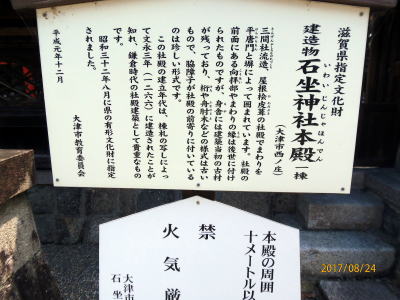 滋賀県指定文化財
建造物 石坐神社本殿 一棟
いわいじんじゃほんでん
(大津市西ノ庄)
三間社流造、屋根桧皮葺の社殿でまわりを
平唐門と塀によって囲まれています。社殿の
前面にある向拝部やまわりの縁は後世に付け
られたものですが、身舎には建築当初の古材
が残っており、桁や舟肘木などの様式は古い
もので、脇障子が社殿の前寄りに付いている
のは珍しい形式です。
この社殿の建立年代は、棟札の写しによっ
て文永三年(一二六六)に建造されたことが
知れ、鎌倉時代の社殿建築として貴重なもの
です。
昭和三十二年八月に県の有形文化財に指定
されました。
平成元年十二月
大津市教育委員会
本殿の周囲
十メートル以
禁
火気厳
大津市
石坐
2017/08/24